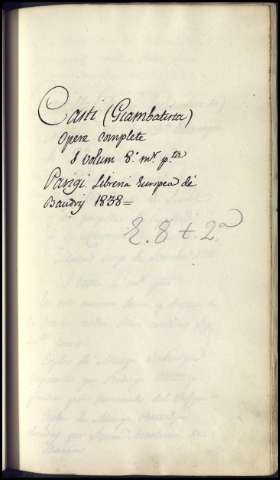 Casti (Giambatista)
Opere complete
1 volum 8º mr. p.ta
Parigi Libreria Europea de
Baudry 1838=
E. 8 t. 2º